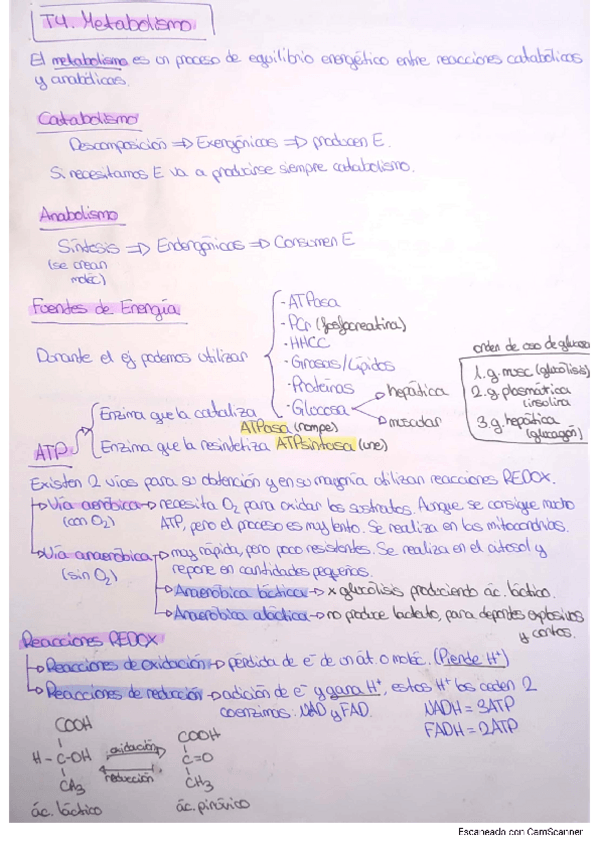 T4. Metabolismo
El metabolismo es un proceso de equilibrio energético entre reacciones catabólicas
y anabólicas.
Catabolismo
Descomposición => Exergónicas => producen E.
Si necesitamos E va a producirse siempre catabolismo.
Anabolismo
Síntesis => Endergónicas => Consumen E
(se crean
moléc)
Fuentes de Energía
Durante el ej podemos utilizar
- ATPasa
- PCr (fosfocreatina)
- HHCC
- Grasas/Lípidos
- Proteínas
- Glucosa
hepática
muscular
orden de uso de glucosa
1. g. musc (glucólisis)
2. g. plasmática
(insulina
3. g. hepática
(glucagón)
ATP
Enzima que la cataliza
ATPasa (rompe)
Enzima que la resintetiza ATPsintasa (une)
Existen 2 vías para su obtención y en su mayoría utilizan reacciones REDOX.
Vía aeróbica → necesita O2 para oxidar los sustratos. Aunque se consigue mucho
(con O2) ATP, pero el proceso es muy lento. Se realiza en las mitocondrias.
Vía anaeróbica → muy rápida, pero poco resistentes. Se realiza en el citosol y
(sin O2) repone en cantidades pequeñas.
→ Anaeróbica láctica → x glucólisis produciendo ác. láctico.
→ Anaeróbica aláctica → no produce lactato, para deportes explosivos
y cortos.
Reacciones REDOX
→ Reacciones de oxidación → pérdida de e⁻ de un át. o moléc. (Pierde H⁺)
→ Reacciones de reducción → adición de e⁻ y gana H⁺, estos H⁺ los ceden 2
coenzimas: NAD y FAD.
NADH = 3ATP
FADH = 2ATP
COOH
H - C-OH
CH3
ác. láctico
oxidación
reducción
COOH
C=O
CH3
ác. pirúvico
Escaneado con CamScanner